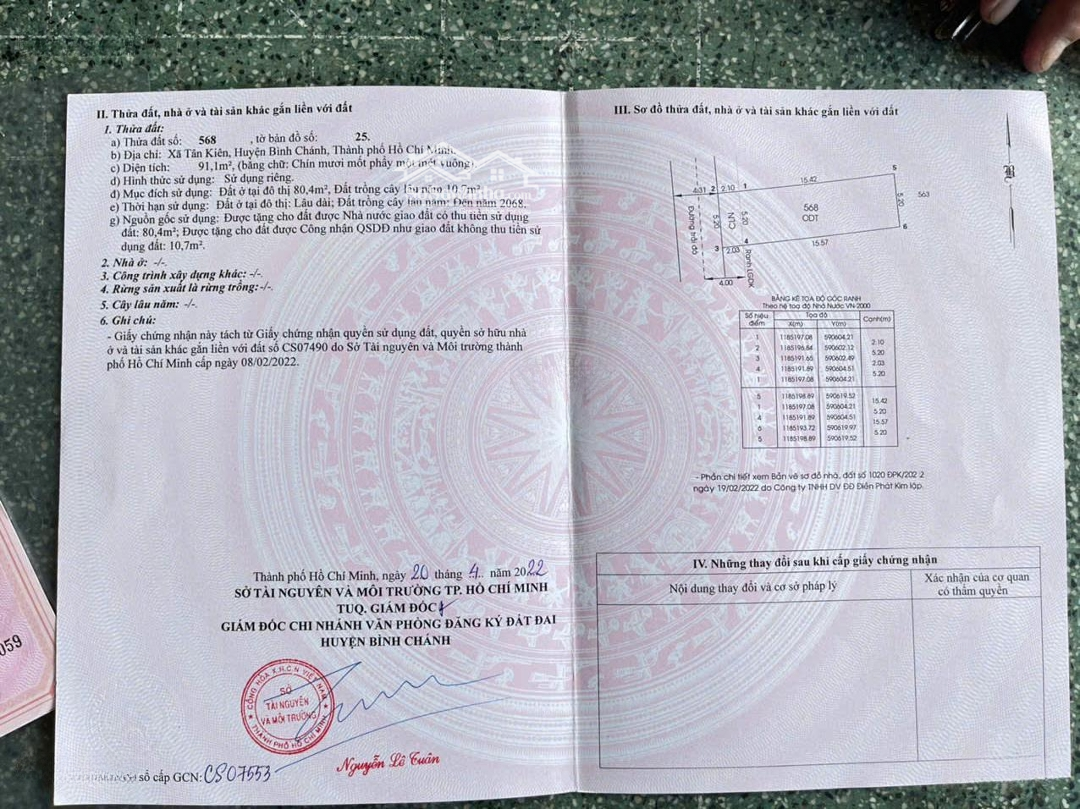 II. Thửa đất, nhà ở và tài sản khác gắn liền với đất
1. Thửa đất:
a) Thửa đất số: 568 , tờ bản đồ số: 25.
b) Địa chỉ: Xã Tân Kiên, Huyện Bình Chánh, Thành phố Hồ Chí Minh.
c) Diện tích: 91,1m², (bằng chữ: Chín mươi mốt phẩy một mét vuông).
d) Hình thức sử dụng: Sử dụng riêng.
đ) Mục đích sử dụng: Đất ở tại đô thị 80,4m², Đất trồng cây lâu năm 10,7m².
e) Thời hạn sử dụng: Đất ở tại đô thị: Lâu dài; Đất trồng cây lâu năm: Đến năm 2068.
g) Nguồn gốc sử dụng: Được tặng cho đất được Nhà nước giao đất có thu tiền sử dụng
đất: 80,4m²; Được tặng cho đất được Công nhận QSDĐ như giao đất không thu tiền sử
dụng đất: 10,7m².
2. Nhà ở: -/-.
3. Công trình xây dựng khác: -/-.
4. Rừng sản xuất là rừng trồng:-/-.
5. Cây lâu năm: -/-.
6. Ghi chú:
- Giấy chứng nhận này tách từ Giấy chứng nhận quyền sử dụng đất, quyền sở hữu nhà
ở và tài sản khác gắn liền với đất số CS07490 do Sở Tài nguyên và Môi trường thành
phố Hồ Chí Minh cấp ngày 08/02/2022.
Thành phố Hồ Chí Minh, ngày 20 tháng 4 năm 2022
SỞ TÀI NGUYÊN VÀ MÔI TRƯỜNG TP. HỒ CHÍ MINH
TUQ. GIÁM ĐỐC
GIÁM ĐỐC CHI NHÁNH VĂN PHÒNG ĐĂNG KÝ ĐẤT ĐAI
HUYỆN BÌNH CHÁNH
CỘNG HÒA X.H.C.N VIỆT NAM
SỞ
TÀI NGUYÊN
VÀ MÔI TRƯỜNG
THÀNH PHỐ HỒ CHÍ MINH
Nguyễn Lê Tuân
số cấp GCN: CS07553
059
III. Sơ đồ thửa đất, nhà ở và tài sản khác gắn liền với đất
B
4.31 2 2.10 1 15.42 5
Đường trải đá
5.20
NTD
5.20
568
ODT
5.20
563
6
3 2.03 4 15.57
Ranh LGĐK
4.00
BẢNG KÊ TỌA ĐỘ GÓC RANH
Theo hệ tọa độ Nhà Nước VN-2000
Số hiệu điểm Tọa độ Cạnh(m)
X(m) Y(m)
1 1185197.08 590604.21
2.10
2 1185196.84 590602.12
5.20
3 1185191.65 590602.49
2.03
4 1185191.89 590604.51
5.20
1 1185197.08 590604.21
5 1185198.89 590619.52
15.42
1 1185197.08 590604.21
5.20
4 1185191.89 590604.51
15.57
6 1185193.72 590619.97
5.20
5 1185198.89 590619.52
- Phần chi tiết xem Bản vẽ sơ đồ nhà, đất số 1020 ĐPK/2022
ngày 19/02/2022 do Công ty TNHH DV ĐĐ Điền Phát Kim lập.
IV. Những thay đổi sau khi cấp giấy chứng nhận
Nội dung thay đổi và cơ sở pháp lý
Xác nhận của cơ quan
có thẩm quyền